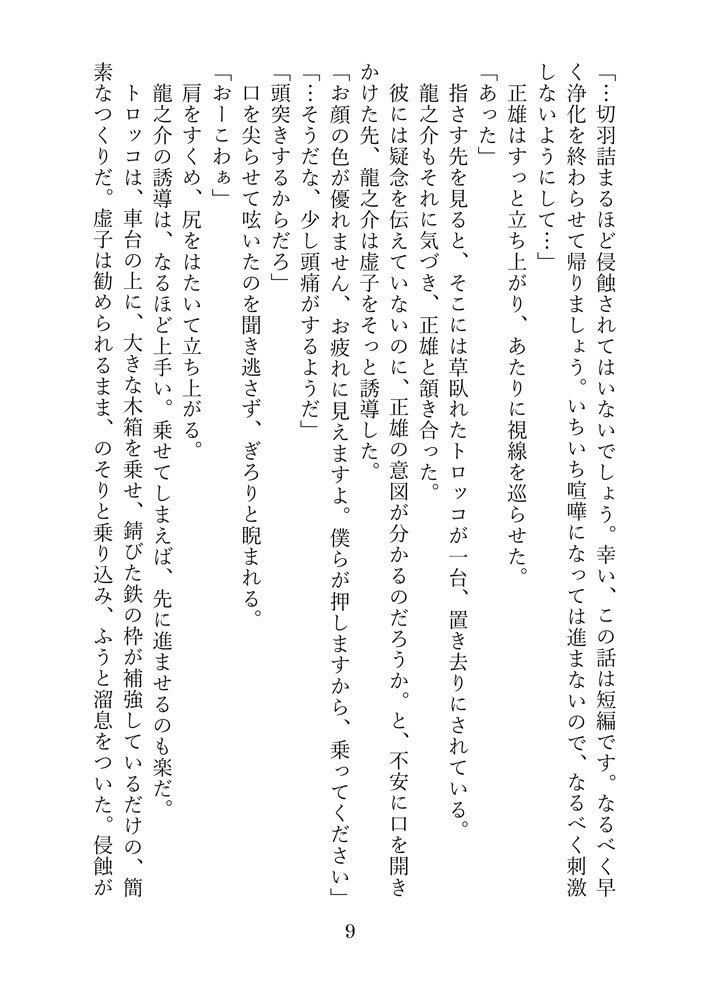 「…切羽詰まるほど侵蝕されてはいないでしょう。幸い、この話は短編です。なるべく早
く浄化を終わらせて帰りましょう。いちいち喧嘩になっては進まないので、なるべく刺激
しないようにして…」
正雄はすっと立ち上がり、あたりに視線を巡らせた。
「あった」
指さす先を見ると、そこには草臥れたトロッコが一台、置き去りにされている。
龍之介もそれに気づき、正雄と頷き合った。
彼には疑念を伝えていないのに、正雄の意図が分かるのだろうか。と、不安に口を開き
かけた先、龍之介は虚子をそっと誘導した。
「お顔の色が優れません、お疲れに見えますよ。僕らが押しますから、乗ってください」
「…そうだな、少し頭痛がするようだ」
「頭突きするからだろ」
口を尖らせて呟いたのを聞き逃さず、ぎろりと睨まれる。
「おーこわぁ」
肩をすくめ、尻をはたいて立ち上がる。
龍之介の誘導は、なるほど上手い。乗せてしまえば、先に進ませるのも楽だ。
トロッコは、車台の上に、大きな木箱を乗せ、錆びた鉄の枠が補強しているだけの、簡
素なつくりだ。虚子は勧められるまま、のそりと乗り込み、ふうと溜息をついた。侵蝕が
9